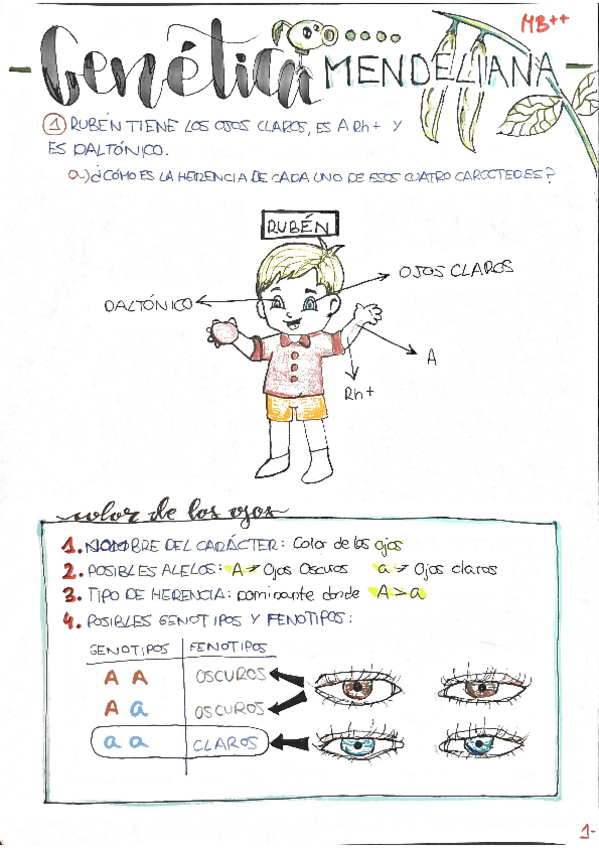 Genética MENDELIANA
MB++
1 RUBÉN TIENE LOS OJOS CLAROS, ES A Rh+ Y
ES DALTÓNICO.
a) ¿CÓMO ES LA HERENCIA DE CADA UNO DE ESOS CUATRO CARACTERES?
RUBÉN
OJOS CLAROS
DALTÓNICO
A
Rh+
color de los ojos
1. NOMBRE DEL CARÁCTER: Color de los ojos
2. POSIBLES ALELOS: A→ Ojos Oscuros a→ Ojos claros
3. TIPO DE HERENCIA: Dominante donde A>a
4. POSIBLES GENOTIPOS Y FENOTIPOS:
GENOTIPOS FENOTIPOS
A A OSCUROS
A a OSCUROS
a a CLAROS
1-